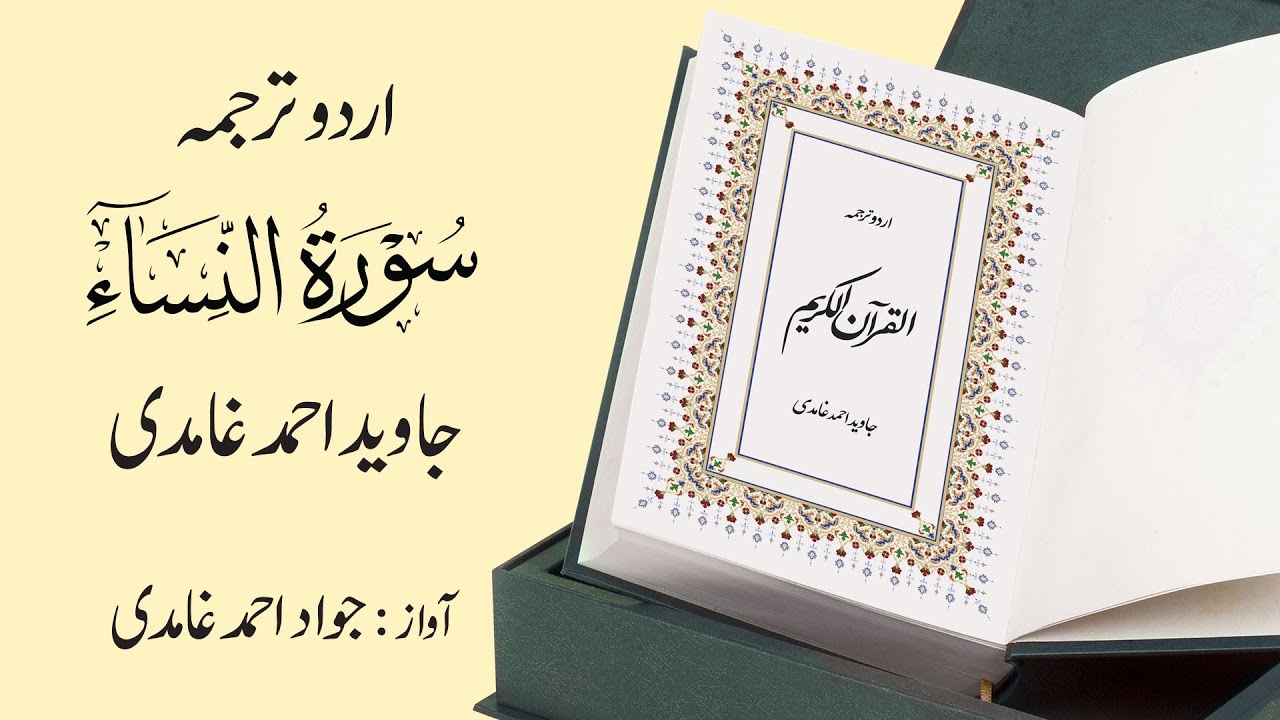 اردو ترجمہ
سُوْرَةُ النِّسَآءِ
جاوید احمد غامدی
آواز : جواد احمد غامدی
اردو ترجمہ
القرآن الکریم
جاوید احمد غامدی